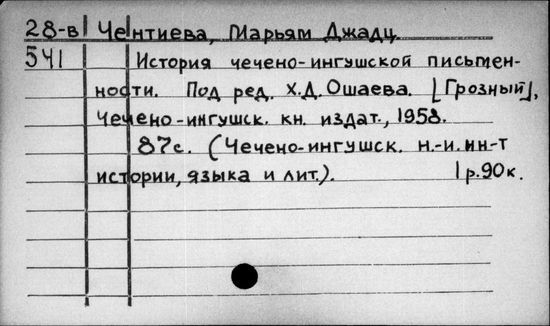 28-в Чентиева, Марьям Джадц.
541 История чечено-ингушской письмен-
ности. Под ред. Х.Д. Ошаева. [Грозный],
Чечено-ингушск. кн. издат., 1958.
87с. (Чечено-ингушск. н.-и. ин-т
истории, языка и лит.). 1р.90к.